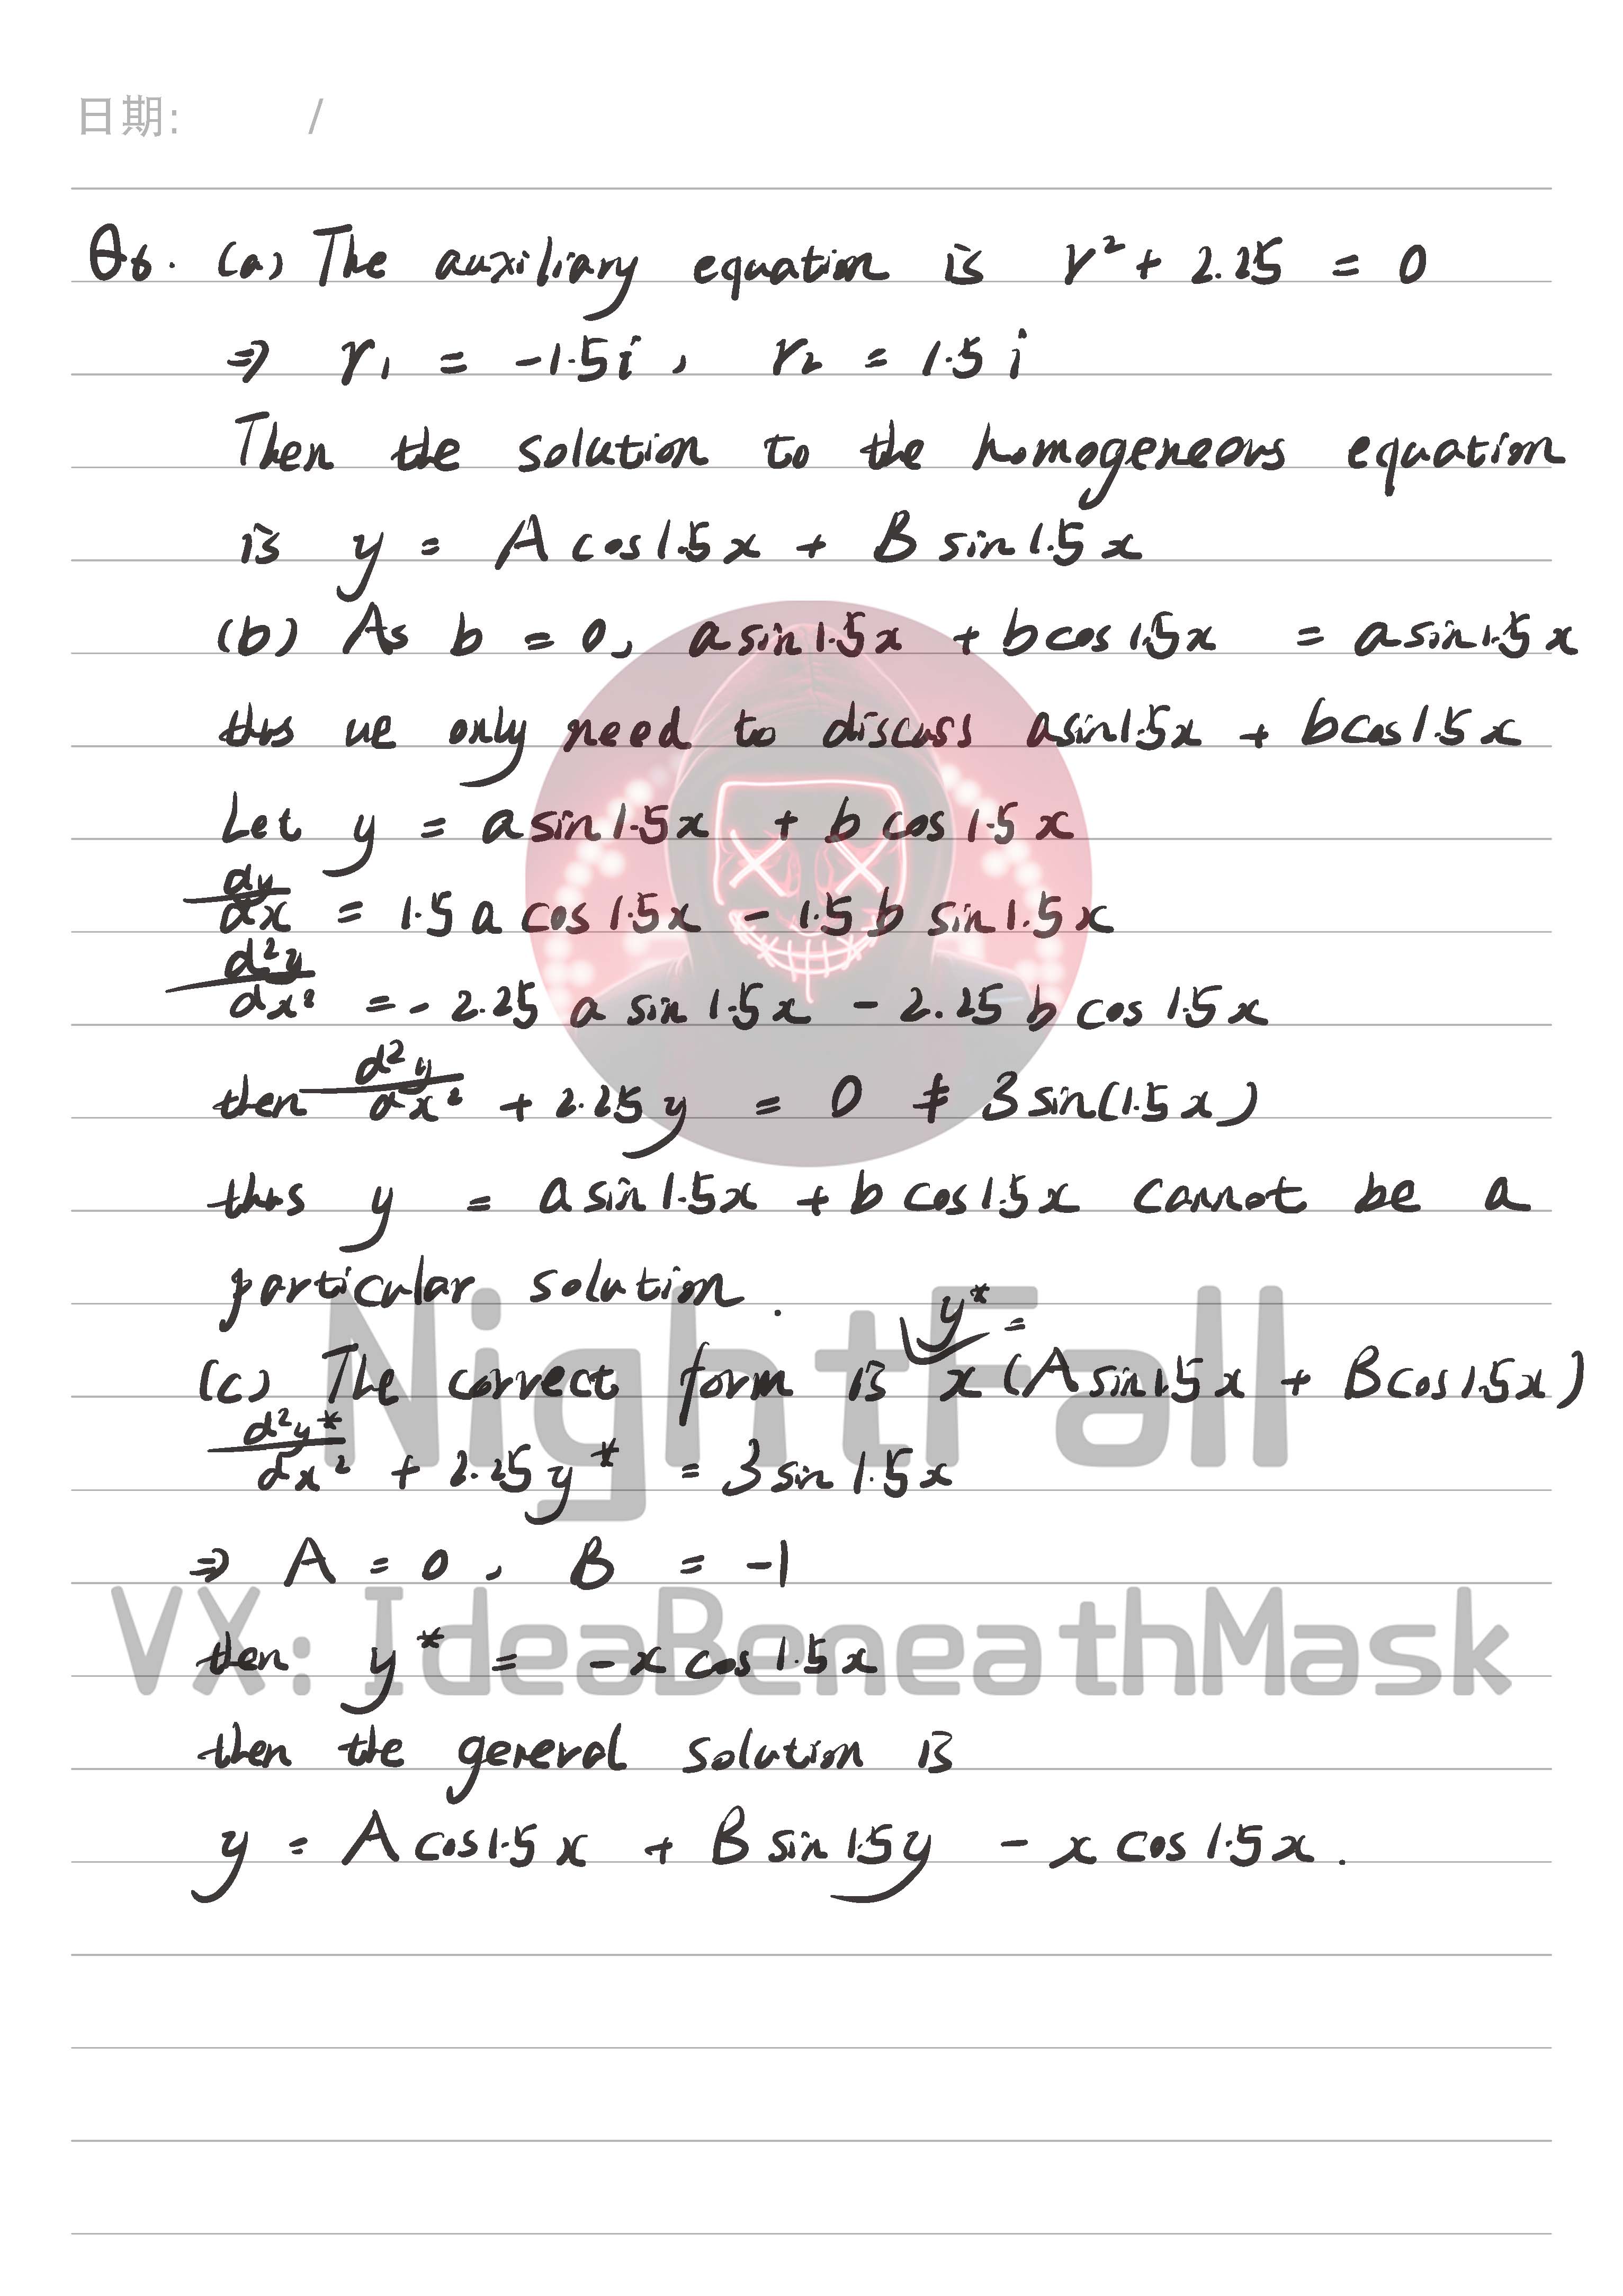 日期: /
Q6. (a) The auxiliary equation is r² + 2.25 = 0
⇒ r₁ = -1.5i, r₂ = 1.5i
Then the solution to the homogeneous equation
is y = A cos1.5x + B sin1.5x
(b) As b = 0, a sin1.5x + b cos1.5x = a sin1.5x
thus we only need to discuss a sin1.5x + b cos1.5x
Let y = a sin1.5x + b cos1.5x
dy/dx = 1.5 a cos1.5x - 1.5 b sin1.5x
d²y/dx² = - 2.25 a sin1.5x - 2.25 b cos1.5x
then d²y/dx² + 2.25y = 0 ≠ 3 sin(1.5x)
thus y = a sin1.5x + b cos1.5x cannot be a
particular solution.
(c) The correct form is y* = x (A sin1.5x + B cos1.5x)
d²y*/dx² + 2.25y* = 3 sin1.5x
⇒ A = 0, B = -1
then y* = -x cos1.5x
then the general solution is
y = A cos1.5x + B sin1.5y - x cos1.5x.
NightFall
VX: IdeaBeneathMask